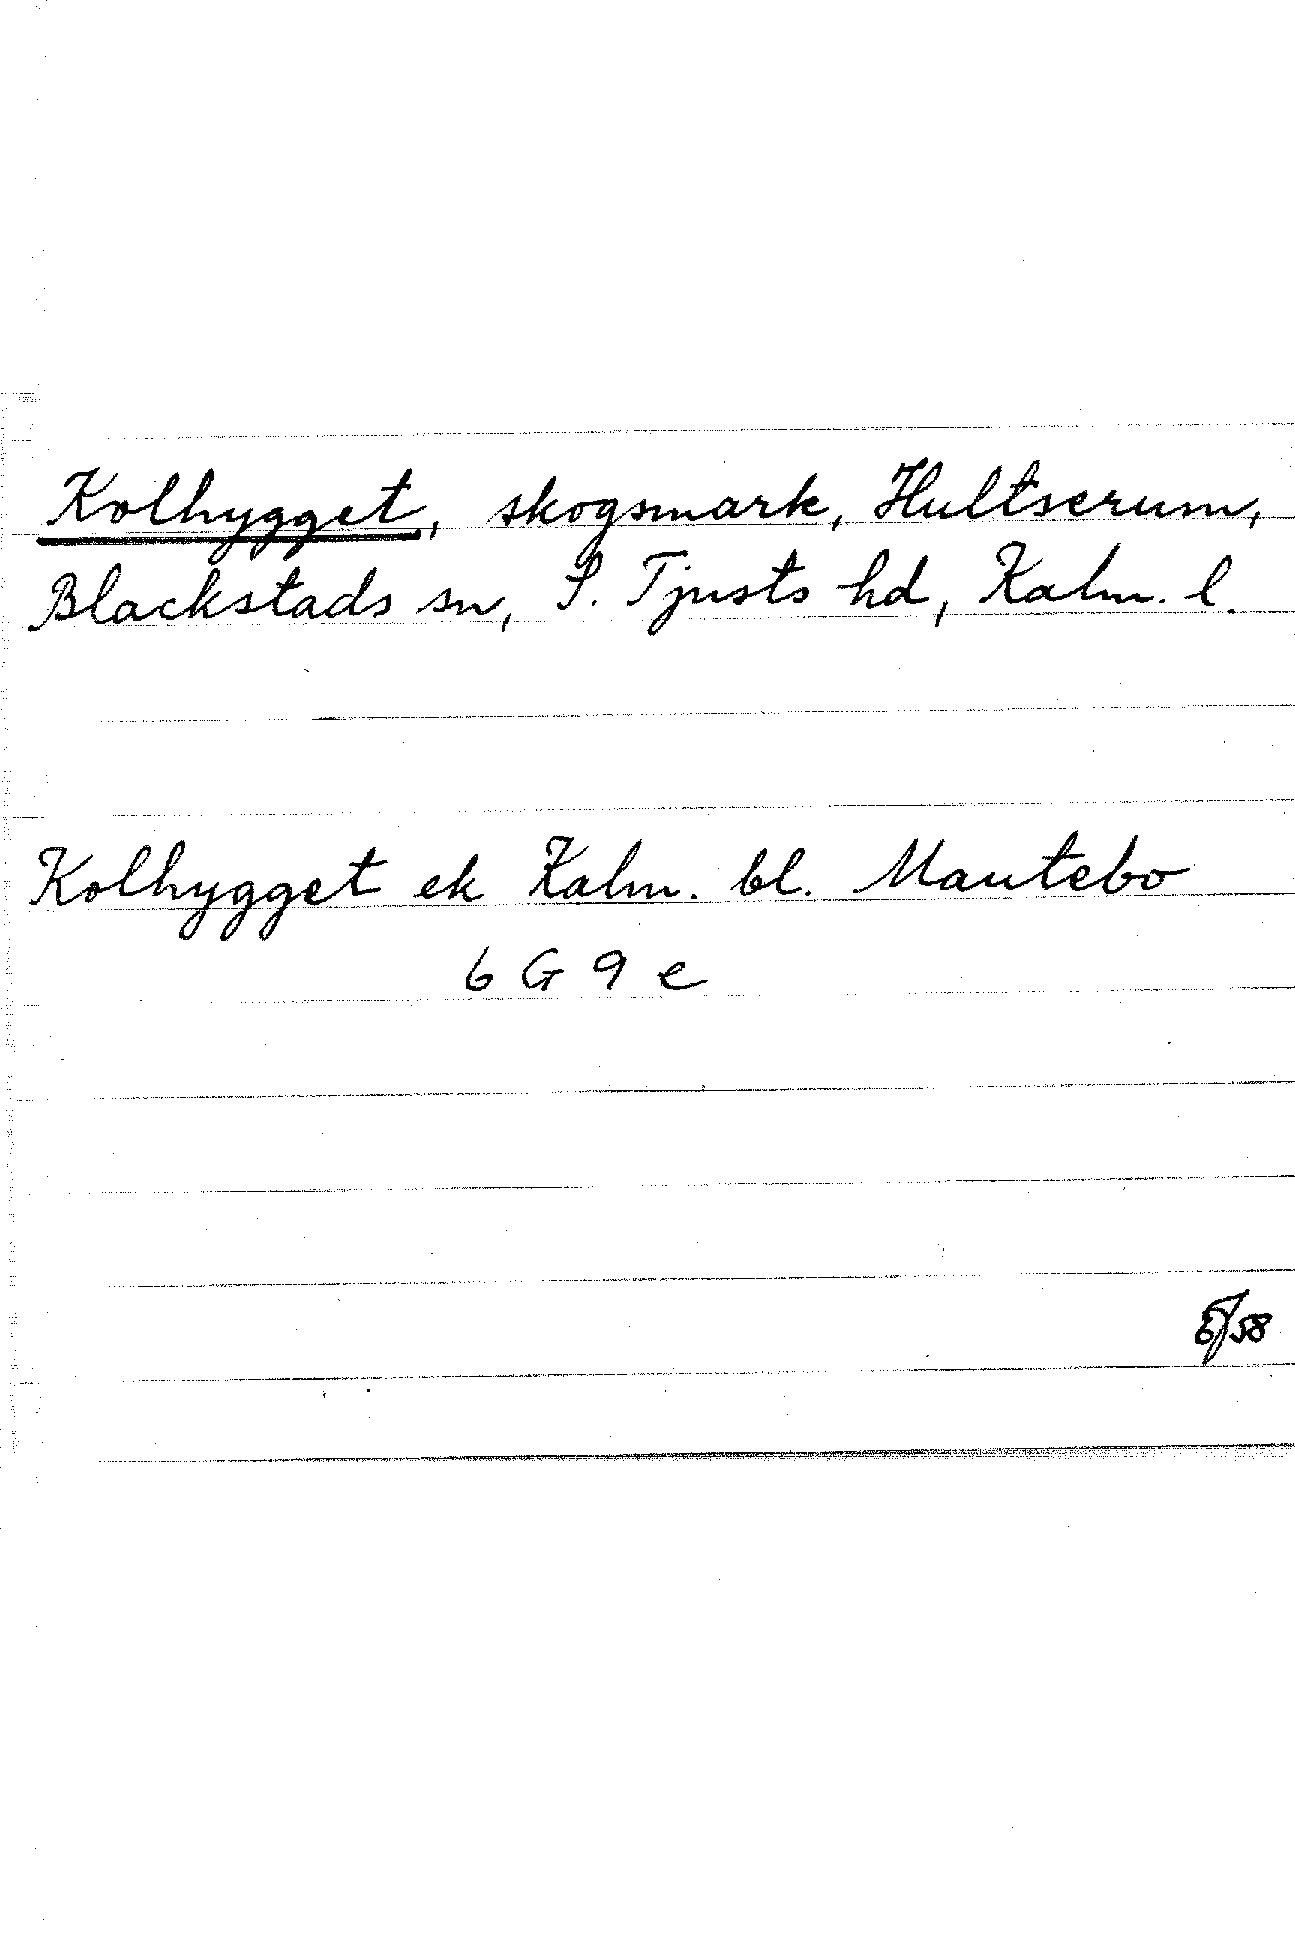 Kolhygget, skogsmark, Hultserum,
Blackstads sn, S. Tjusts hd, Kalm. l.
Kolhygget ek Kalm. bl. Mantebo
6 G 9 e
/58